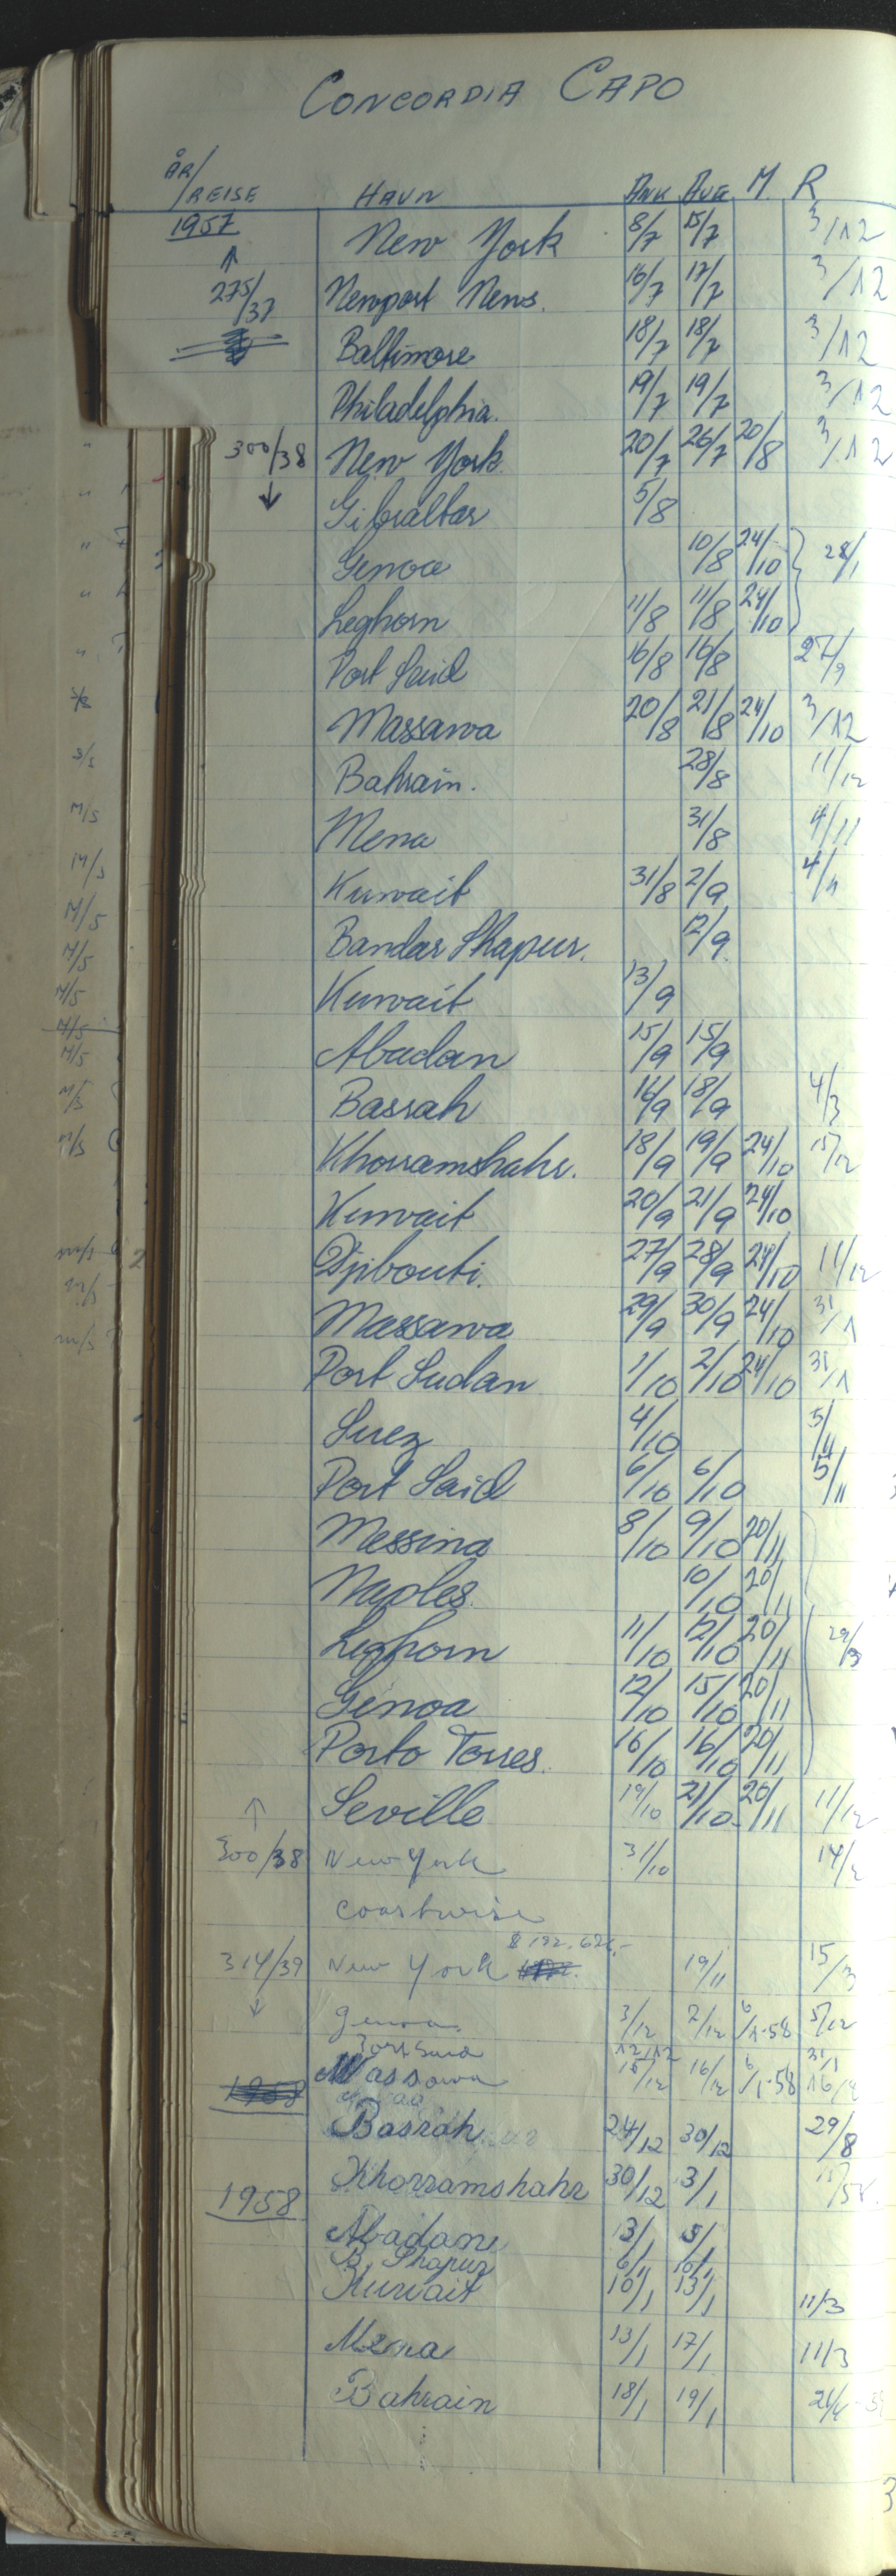 CONCORDIA CAPO
ÅR/REISE HAVN ANK AVG M R
1957 New York 8/7 15/7 3/12
275/37 Newport News. 16/7 17/7 3/12
Baltimore 18/7 18/7 3/12
Philadelphia. 19/7 19/7 3/12
300/38 New York 20/7 26/7 20/8 3/12
Gibraltar 5/8
Genoa 10/8 24/10 28/1
Leghorn 11/8 11/8 24/10
Port Said 16/8 16/8 27/9
Massawa 20/8 21/8 24/10 3/12
Bahrain. 28/8 11/12
Mena 31/8 4/11
Kuwait 31/8 2/9 4/11
Bandar Shapur. 12/9
Kuwait 13/9
Abadan 15/9 15/9
Basrah 16/9 18/9 4/3
Khorramshahr. 18/9 19/9 24/10 15/12
Kuwait 20/9 21/9 24/10
Djibouti. 27/9 28/9 24/10 11/12
Massawa 29/9 30/9 24/10 31/1
Port Sudan 1/10 2/10 24/10 31/1
Suez 4/10 5/11
Port Said 6/10 6/10 5/11
Messina 8/10 9/10 20/11
Naples. 10/10 20/11
Leghorn 11/10 12/10 20/11 29/3
Genoa 12/10 15/10 20/11
Porto Torres. 16/10 16/10 20/11
Seville 19/10 21/10 20/11 11/12
300/38 New York 31/10
coastwise
314/39 New York 19/11 15/3
Genoa 3/12 7/12 6/1-58 5/12
Port Said 12/12
Massawa 15/12 16/12 6/1-58
Basrah 24/12 30/12 29/8
Khorramshahr 30/12 3/1
1958 Abadan 3/1 5/1
B. Shapur 6/1 10/1
Kuwait 10/1 13/1 11/3
Mena 13/1 17/1 11/3
Bahrain 18/1 19/1